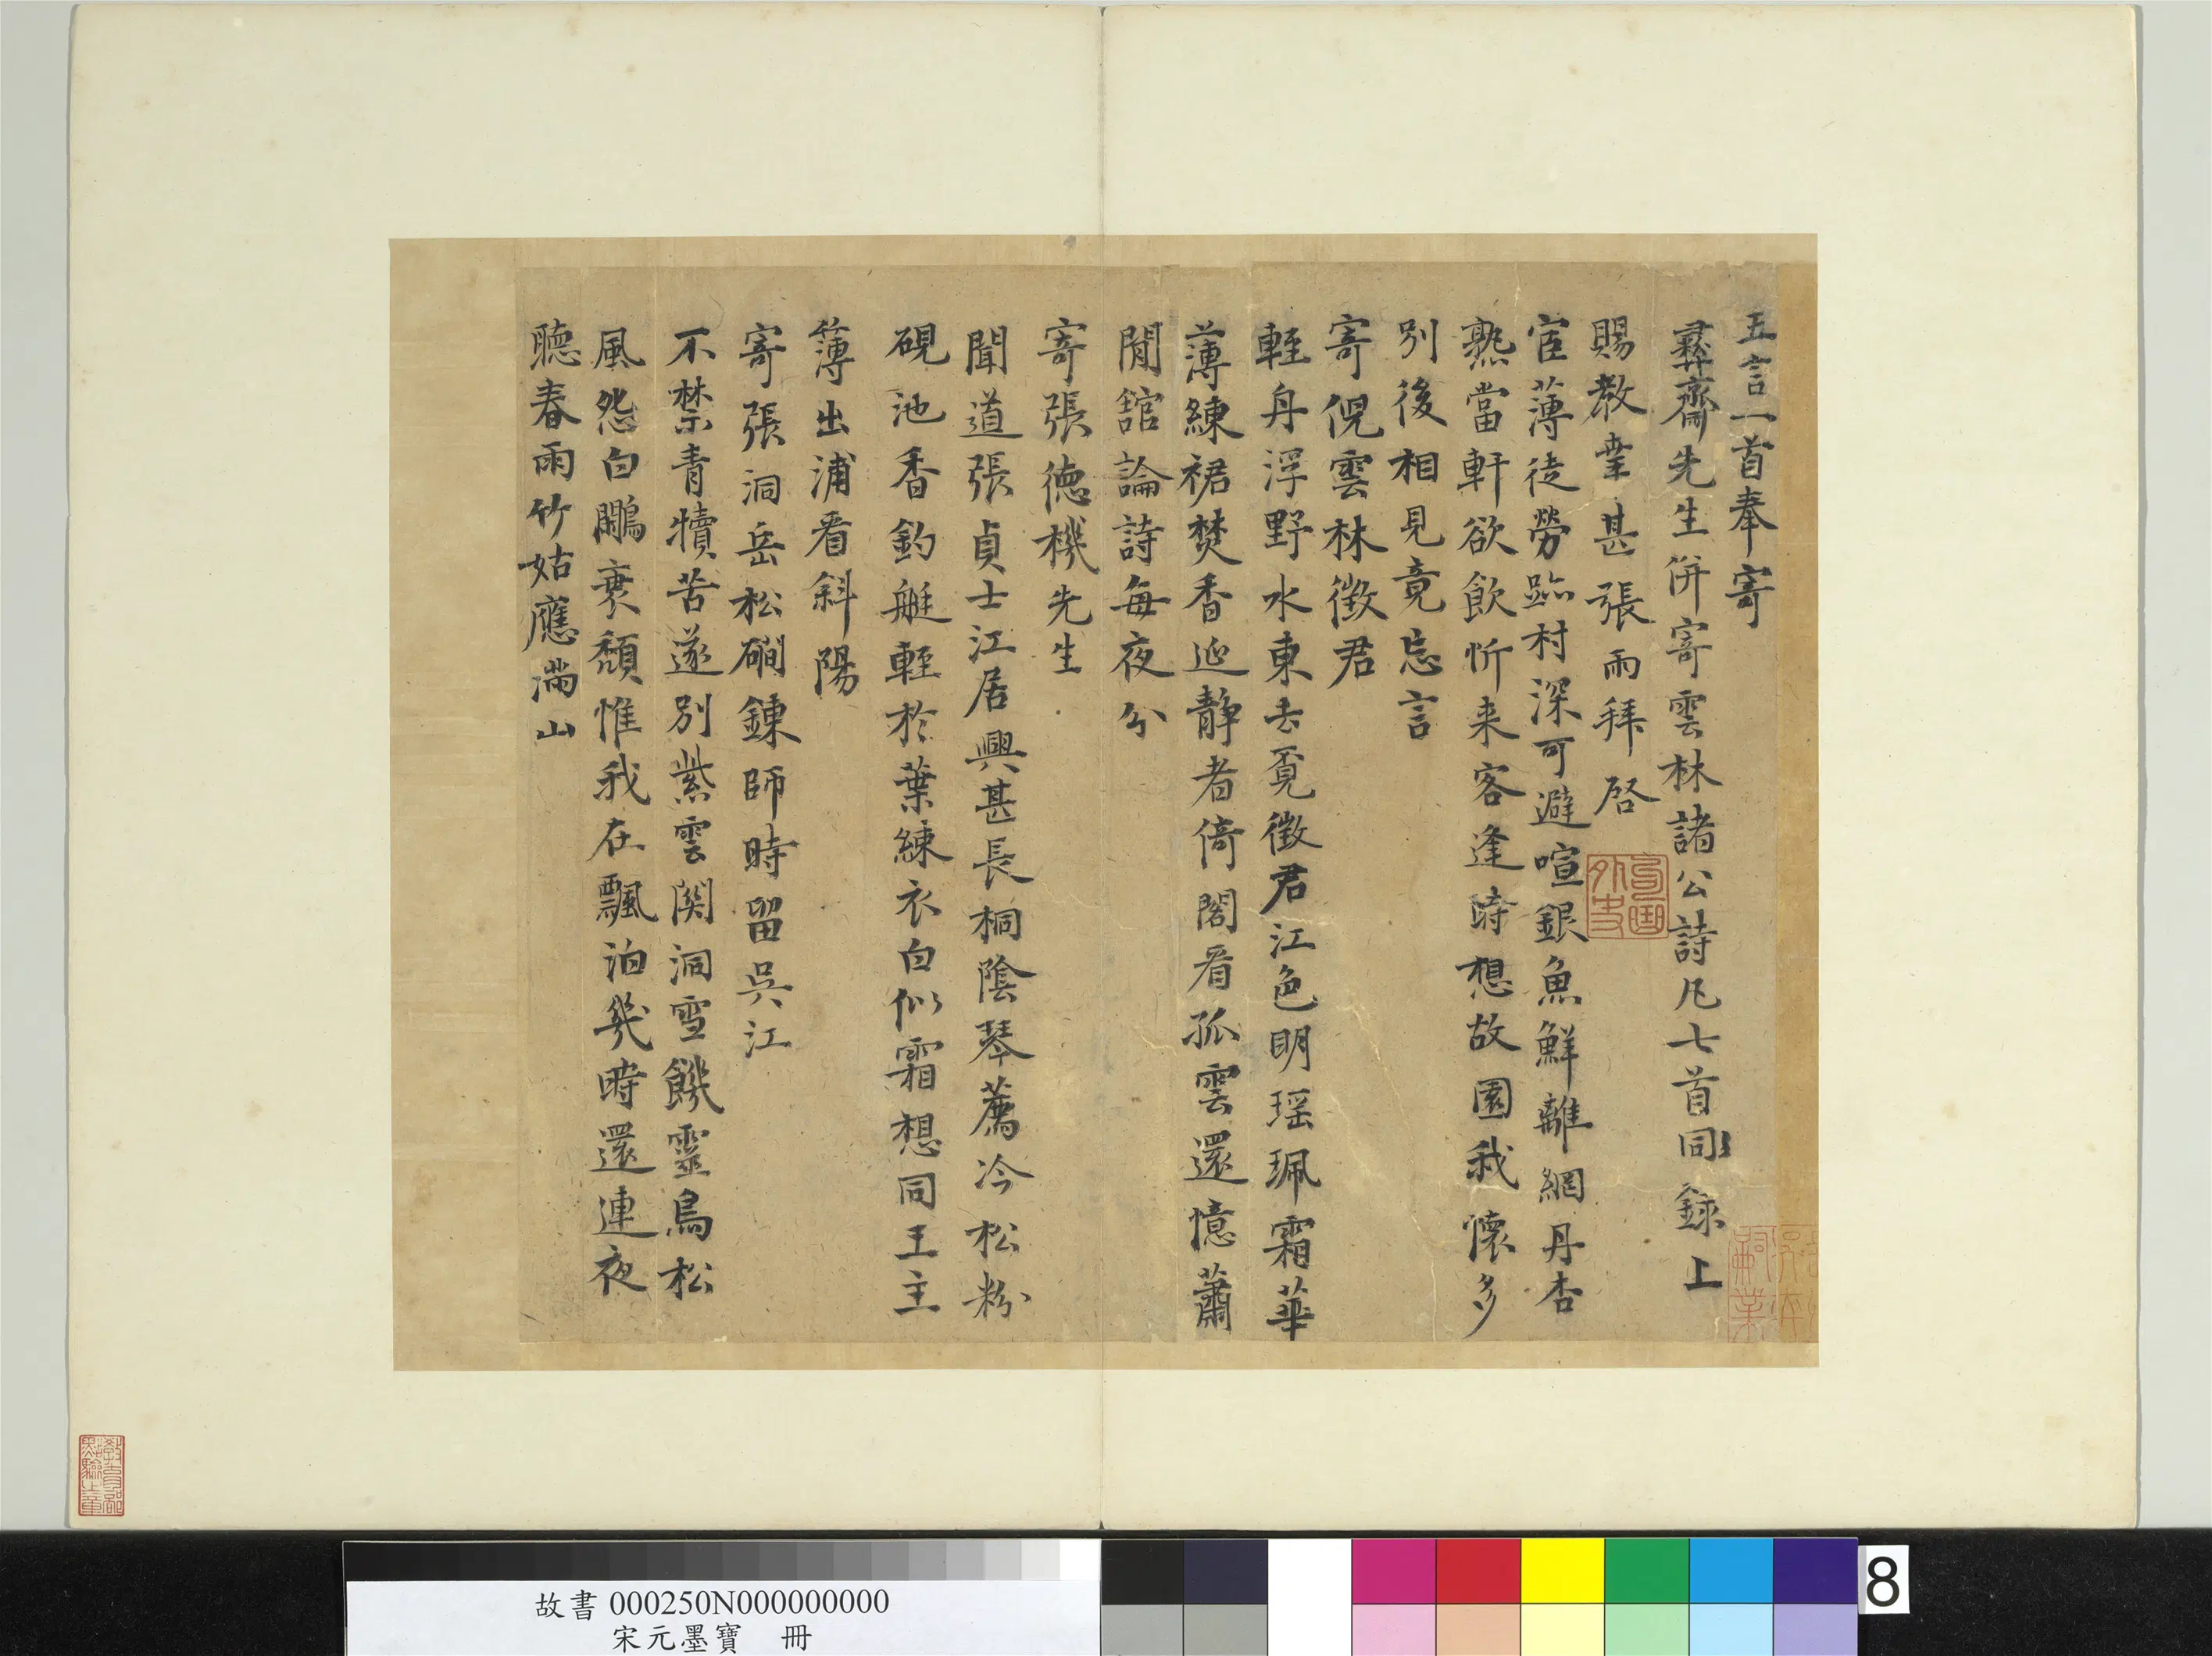 五言一首奉寄
彞齋先生併寄雲林諸公詩凡七首同錄上
賜教幸甚張雨拜啓
宦薄徒勞跡村深可避喧銀魚鮮離網丹杏
熟當軒欲飲忻来客逢時想故園我懷多
別後相見竟忘言
寄倪雲林徵君
輕舟浮野水東去覓徵君江色明瑶珮霜華
薄練裙焚香延靜者倚閣看孤雲還憶蕭
閒舘論詩每夜分
寄張德機先生
聞道張貞士江居興甚長桐陰琴薦冷松粉
硯池香釣艇輕於葉練衣白似霜想同王主
簿出浦看斜陽
寄張洞岳松礀鍊師時留吳江
不禁青犢苦遂別紫雲関洞雪饑靈鳥松
風怨白鷴衰頹惟我在飄泊幾時還連夜
聽春雨竹姑應滿山
故書 000250N000000000
宋元墨寶 冊
8